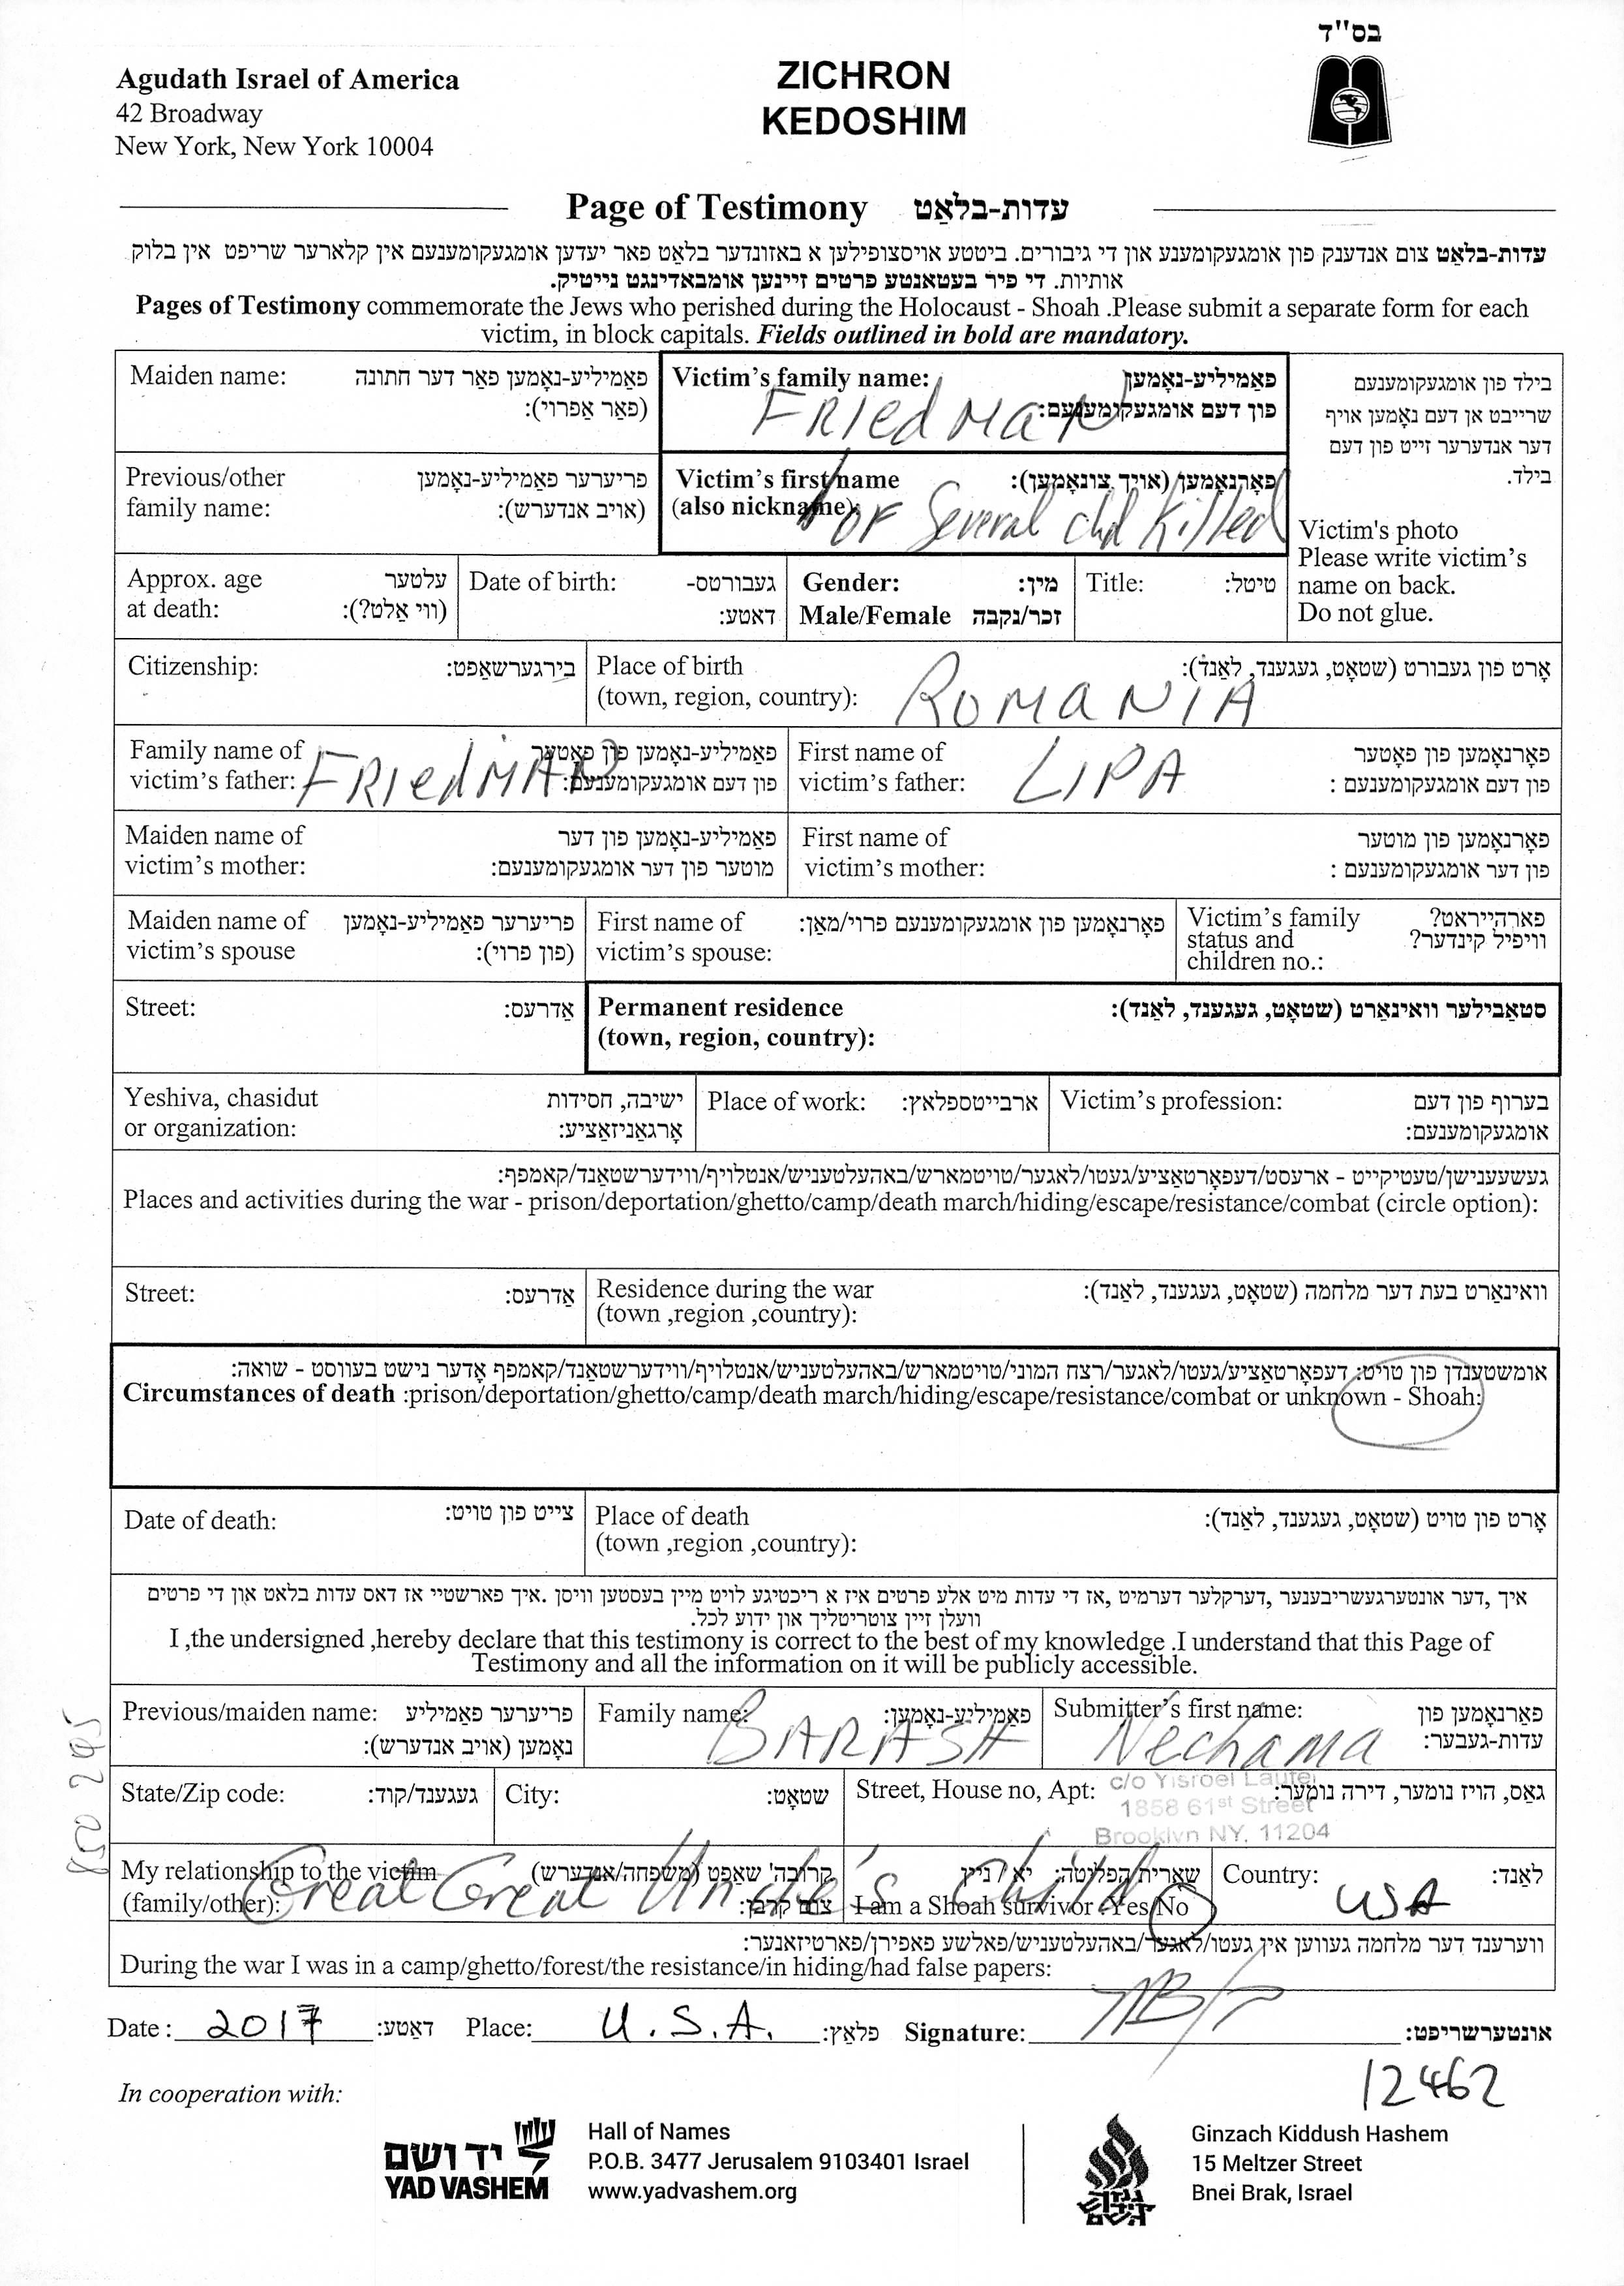 בס"ד
Agudath Israel of America
42 Broadway
New York, New York 10004
ZICHRON
KEDOSHIM
Page of Testimony עדות-בלאַט
עדות-בלאַט צום אנדענק פון אומגעקומענע און די גיבורים. ביטטע אויסצופילען א באזונדער בלאט פאר יעדען אומגעקומענעם אין קלארער שריפט אין בלוק
אותיות. די פיר בעטאנטע פרטים זיינען אומבאדינגט נייטיק.
Pages of Testimony commemorate the Jews who perished during the Holocaust - Shoah .Please submit a separate form for each
victim, in block capitals. Fields outlined in bold are mandatory.
Maiden name: פאַמיליע-נאָמען פאַר דער חתונה
(פאַר אַפרוי):
Victim's family name: פאַמיליע-נאָמען
פון דעם אומגעקומענעם:
FRIedMaN
בילד פון אומגעקומענעם
שרייבט אן דעם נאָמען אויף
דער אנדערער זייט פון דעם
בילד.
Victim's photo
Please write victim's
name on back.
Do not glue.
Previous/other פריערער פאַמיליע-נאָמען
family name: (אויב אנדערש):
Victim's first name פאָרנאָמען (אויך צונאָמען):
(also nickname):
1 OF Several chd Killed
Approx. age עלטער
at death: (ווי אַלט?):
Date of birth: געבורטס-
דאטע:
Gender: מין:
Male/Female זכר/נקבה
Title: טיטל:
Citizenship: בירגערשאַפט:
Place of birth אָרט פון געבורט (שטאָט, געגענד, לאַנד):
(town, region, country):
ROMaNIA
Family name of פאַמיליע-נאָמען פון פאָטער
victim's father: פון דעם אומגעקומענעם:
FRIedMAN
First name of פאָרנאָמען פון פאָטער
victim's father: פון דעם אומגעקומענעם :
LIPA
Maiden name of פאַמיליע-נאָמען פון דער
victim's mother: מוטער פון דער אומגעקומענעם:
First name of פאָרנאָמען פון מוטער
victim's mother: פון דער אומגעקומענעם :
Maiden name of פריערער פאַמיליע-נאָמען
victim's spouse (פון פרוי):
First name of פאָרנאָמען פון אומגעקומענעם פרוי/מאַן:
victim's spouse:
Victim's family פארהייראט?
status and וויפיל קינדער?
children no.:
Street: אַדרעס:
Permanent residence סטאַבילער וואינאָרט (שטאָט, געגענד, לאַנד):
(town, region, country):
Yeshiva, chasidut ישיבה, חסידות
or organization: אָרגאַניזאַציע:
Place of work: ארבייטספלאץ:
Victim's profession: בערוף פון דעם
אומגעקומענעם:
געשעענישן/טעטיקייט - ארעסט/דעפאָרטאַציע/געטו/לאגער/טויטמארש/באהעלטעניש/אנטלויף/ווידערשטאַנד/קאמפף:
Places and activities during the war - prison/deportation/ghetto/camp/death march/hiding/escape/resistance/combat (circle option):
Street: אַדרעס:
Residence during the war וואינאָרט בעת דער מלחמה (שטאָט, געגענד, לאַנד):
(town ,region ,country):
אומשטענדן פון טויט: דעפאָרטאַציע/געטו/לאגער/רצח המוני/טויטמארש/באהעלטעניש/אנטלויף/ווידערשטאַנד/קאמפף אָדער נישט בעווסט - שואה:
Circumstances of death :prison/deportation/ghetto/camp/death march/hiding/escape/resistance/combat or unknown - Shoah:
Date of death: צייט פון טויט:
Place of death אָרט פון טויט (שטאָט, געגענד, לאַנד):
(town ,region ,country):
איך ,דער אונטערגעשריבענער ,דערקלער דערמיט ,אז די עדות מיט אלע פרטים איז א ריכטיגע לויט מיין בעסטען וויסן .איך פארשטיי אז דאס עדות בלאט און די פרטים
וועלן זיין צוטריטליך און ידוע לכל.
I ,the undersigned ,hereby declare that this testimony is correct to the best of my knowledge .I understand that this Page of
Testimony and all the information on it will be publicly accessible.
Previous/maiden name: פריערער פאַמיליע
נאָמען (אויב אנדערש):
Family name: פאַמיליע-נאָמען:
BARASH
Submitter's first name: פאַרנאָמען פון
עדות-געבער:
Nechama
State/Zip code: געגענד/קוד:
City: שטאָט:
Street, House no, Apt: גאַס, הויז נומער, דירה נומער:
c/o Yisroel Laufer
1858 61st Street
Brooklyn NY. 11204
My relationship to the victim קרובה' שאַפט (משפחה/אנדערש)
(family/other): צום קרבן:
Great Great Uncle's Child
שארית הפליטה: יא / ניין
I am a Shoah survivor :Yes/No
Country: לאַנד:
USA
ווערענד דער מלחמה געווען אין געטו/לאגער/באהעלטעניש/פאלשע פאפירן/פארטיזאנער:
During the war I was in a camp/ghetto/forest/the resistance/in hiding/had false papers:
Date : 2017 דאַטע: Place: U.S.A. פלאַץ: Signature: אונטערשריפט:
12462
850 295
In cooperation with:
יד ושם
YAD VASHEM
Hall of Names
P.O.B. 3477 Jerusalem 9103401 Israel
www.yadvashem.org
גנזך
קידוש
השם
Ginzach Kiddush Hashem
15 Meltzer Street
Bnei Brak, Israel